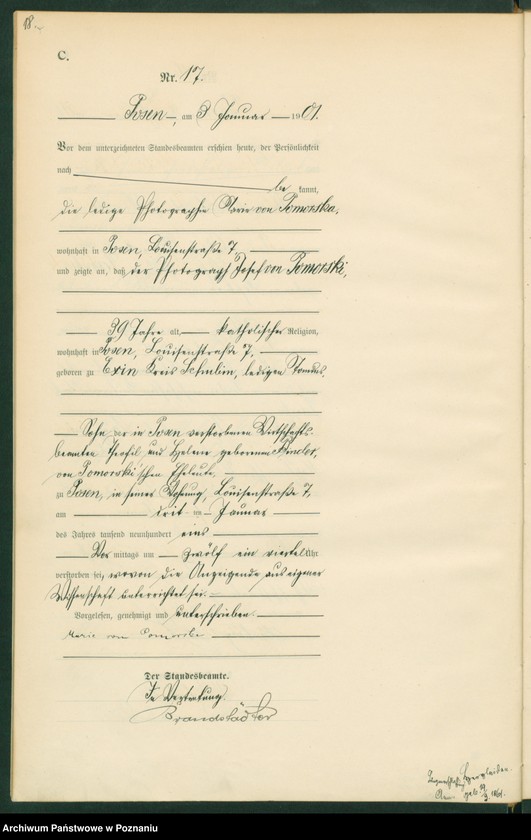 18.
C.
Nr. 17.
Posen, am 3 Januar 1901.
Vor dem unterzeichneten Standesbeamten erschien heute, der Persönlichkeit
nach be kannt,
die ledige Photographin Marie von Pomorska,
wohnhaft in Posen, Louisenstraße 7,
und zeigte an, daß der Photograph Josef von Pomorski,
39 Jahre alt, katholischer Religion,
wohnhaft in Posen, Louisenstraße 7,
geboren zu Exin Kreis Schubin, ledigen Standes,
Sohn der in Posen verstorbenen Wirtschafts-
beamten Theofil und Helene geborenen
von Pomorski'schen Eheleute,
zu Posen, in seiner Wohnung, Louisenstraße 7,
am drit ten Januar
des Jahres tausend neunhundert eins
Vor mittags um zwölf ein viertel Uhr
verstorben sei, wovon die Anzeigende aus eigener
Wissenschaft unterrichtet sei.
Vorgelesen, genehmigt und unterschrieben
Marie von Pomorska
Der Standesbeamte.
In Vertretung.
Brandstädter
Herzleiden.
geb. 1861.
Archiwum Państwowe w Poznaniu